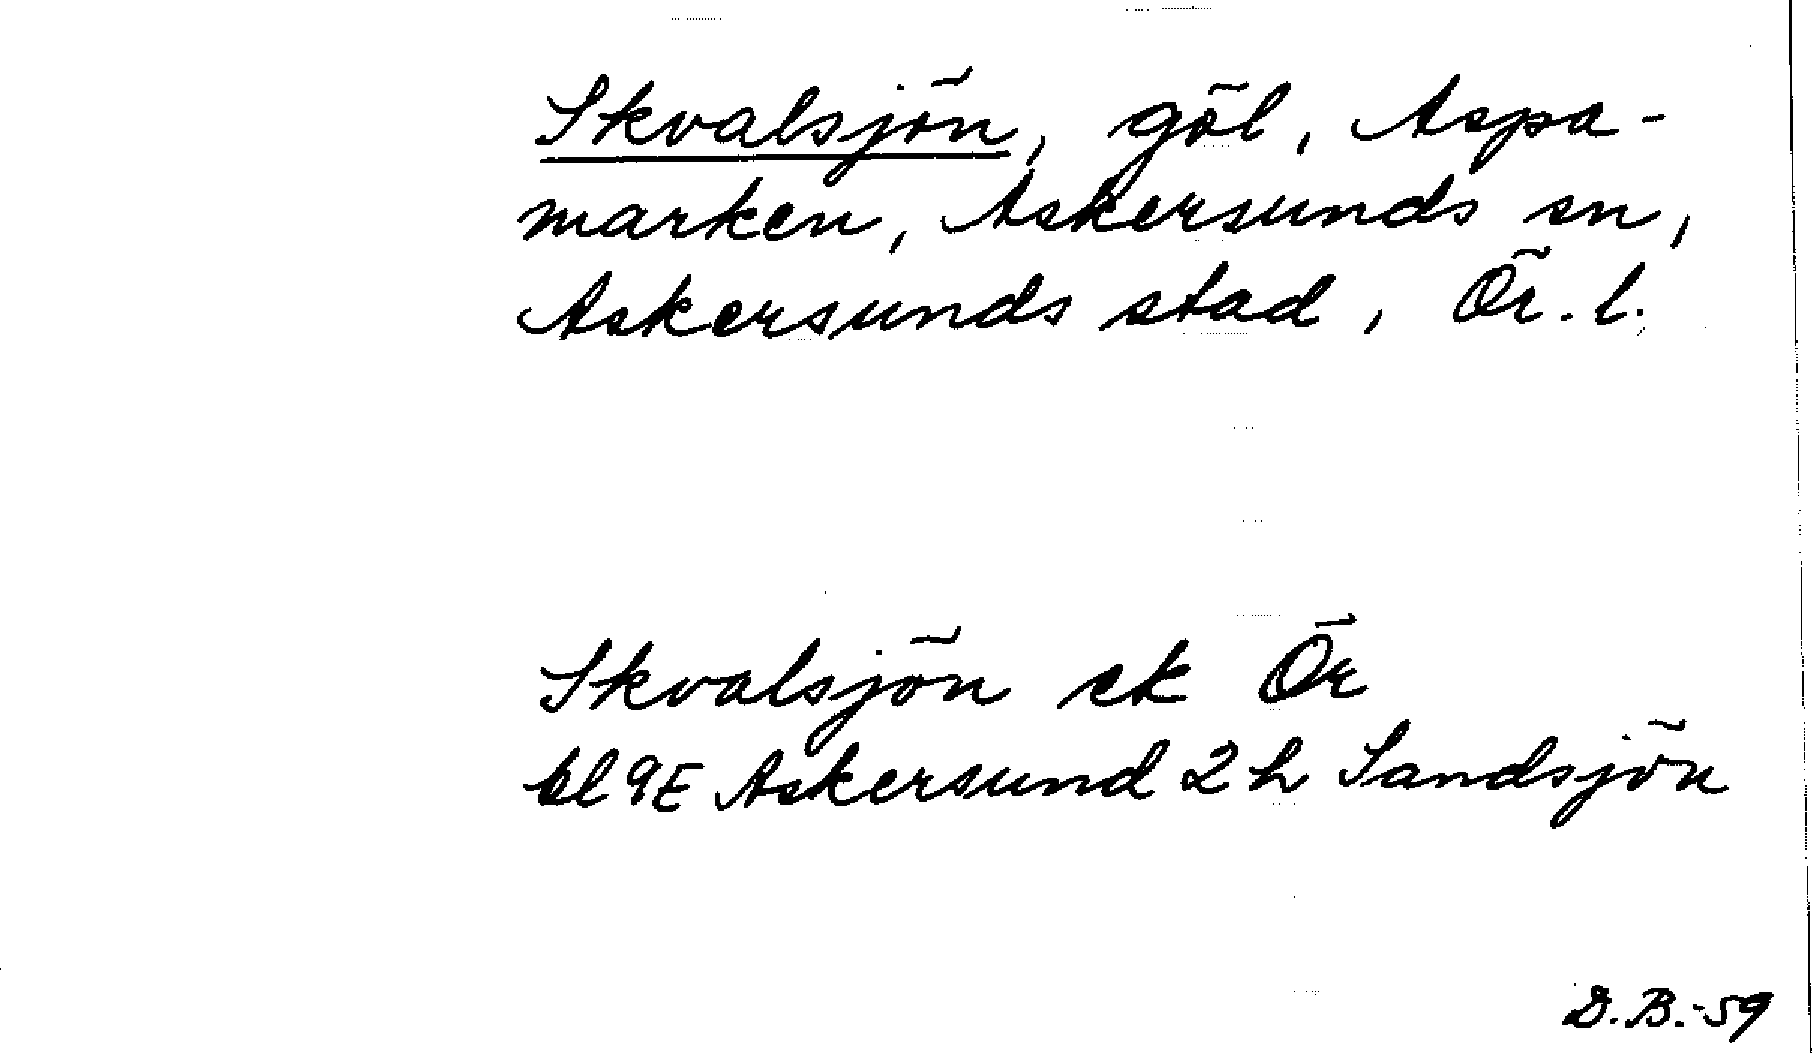 Skvalsjön, göl, Aspa-
marken, Askersunds sn,
Askersunds stad, Ör. l.
Skvalsjön ek Ör
bl 9E Askersund 2 h Sandsjön
D.B.-59